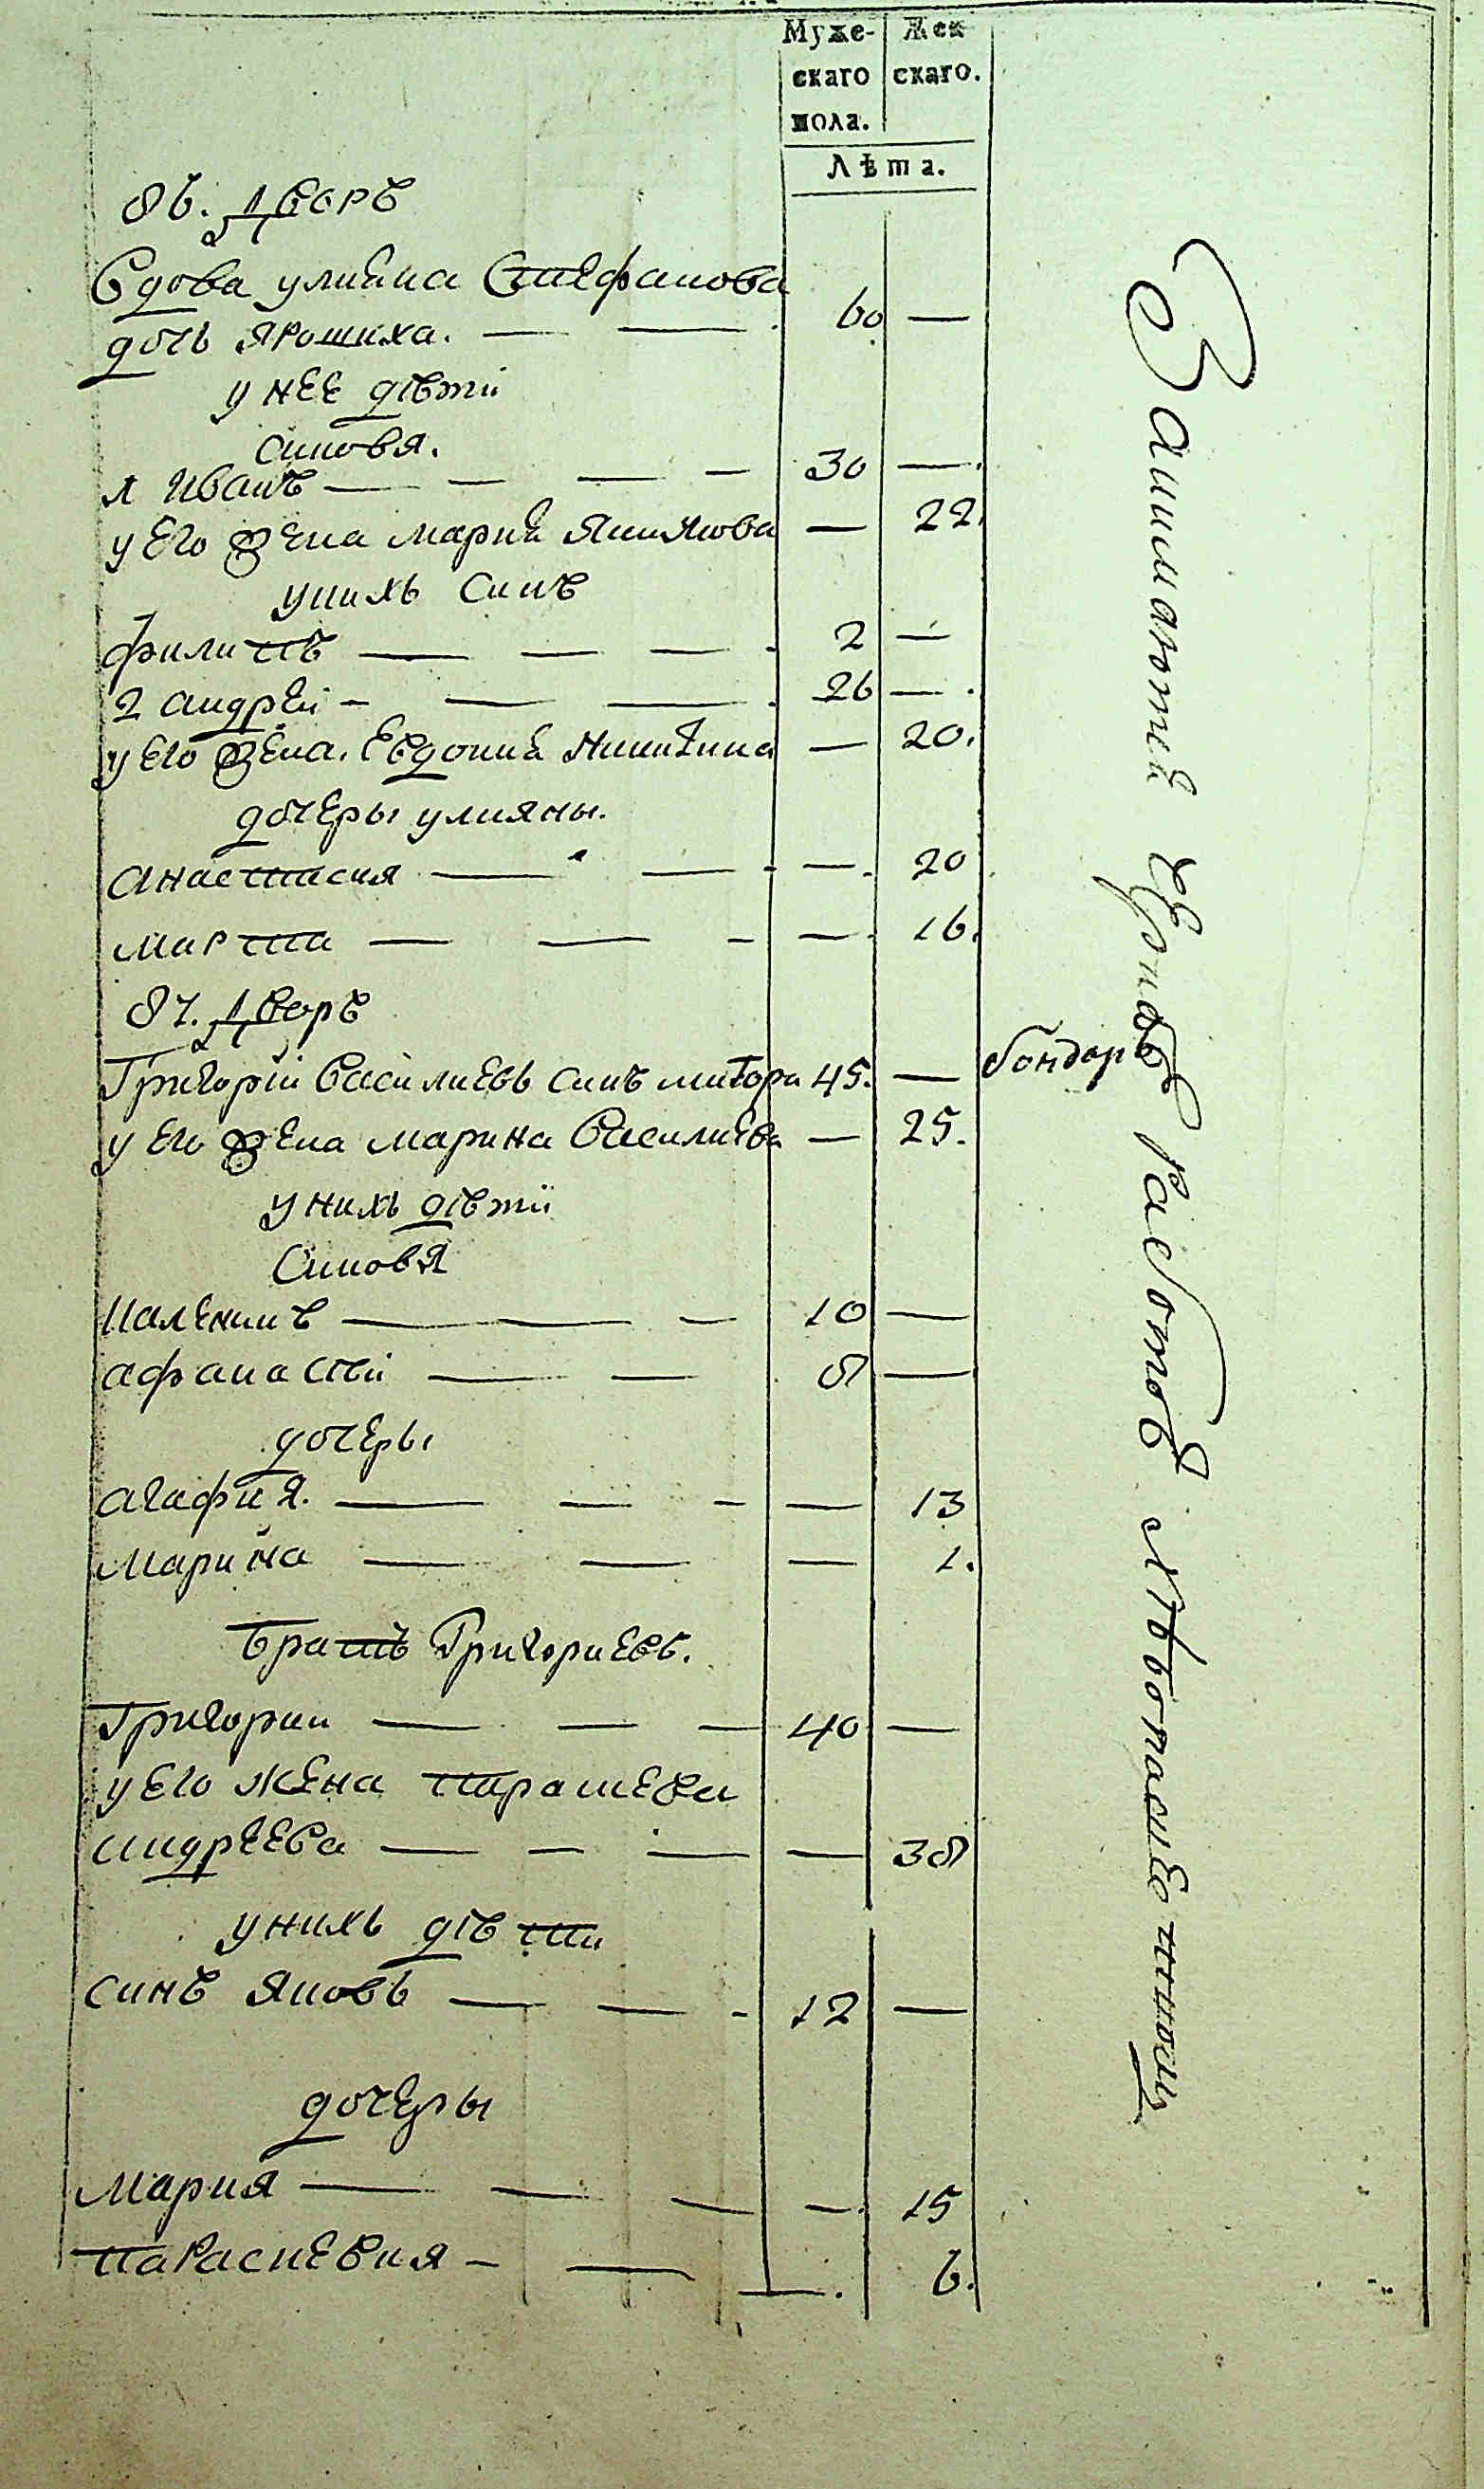 Муже- Жен
скаго скаго.
пола.
Лѣта.
86. Дворъ
Вдова улиана Стефанова
дочь Ярошиха. — — 60 —
у нее дѣти
синовя.
1 Иванъ — — — — 30 —
у его жена мариа Якимова — 22.
унихъ синъ
филипъ — — — 2 —
2 андрей — — — 26 —
у его жена. Евдокиа Никитина — 20.
дочеры улияны.
анастасия — — — 20
марта — — — — 16.
87. Дворъ
Григорій Василиевъ синъ 45. — бондаръ
у его жена марина Василиева — 25.
у нихъ дѣти
Синовя
Каленикъ — — — 10 —
афанасій — — 8 —
дочеры
агафия. — — — — 13
марина — — — 1.
братъ Григориевъ.
Григории — — — 40 —
у его жена параскева
андреева — — — — 38
у нихъ дѣти
синъ Яковъ — — — 12 —
дочеры
Мария — — — — 15
параскевия — — — 6.
Занимаются работою хлѣбопашественною